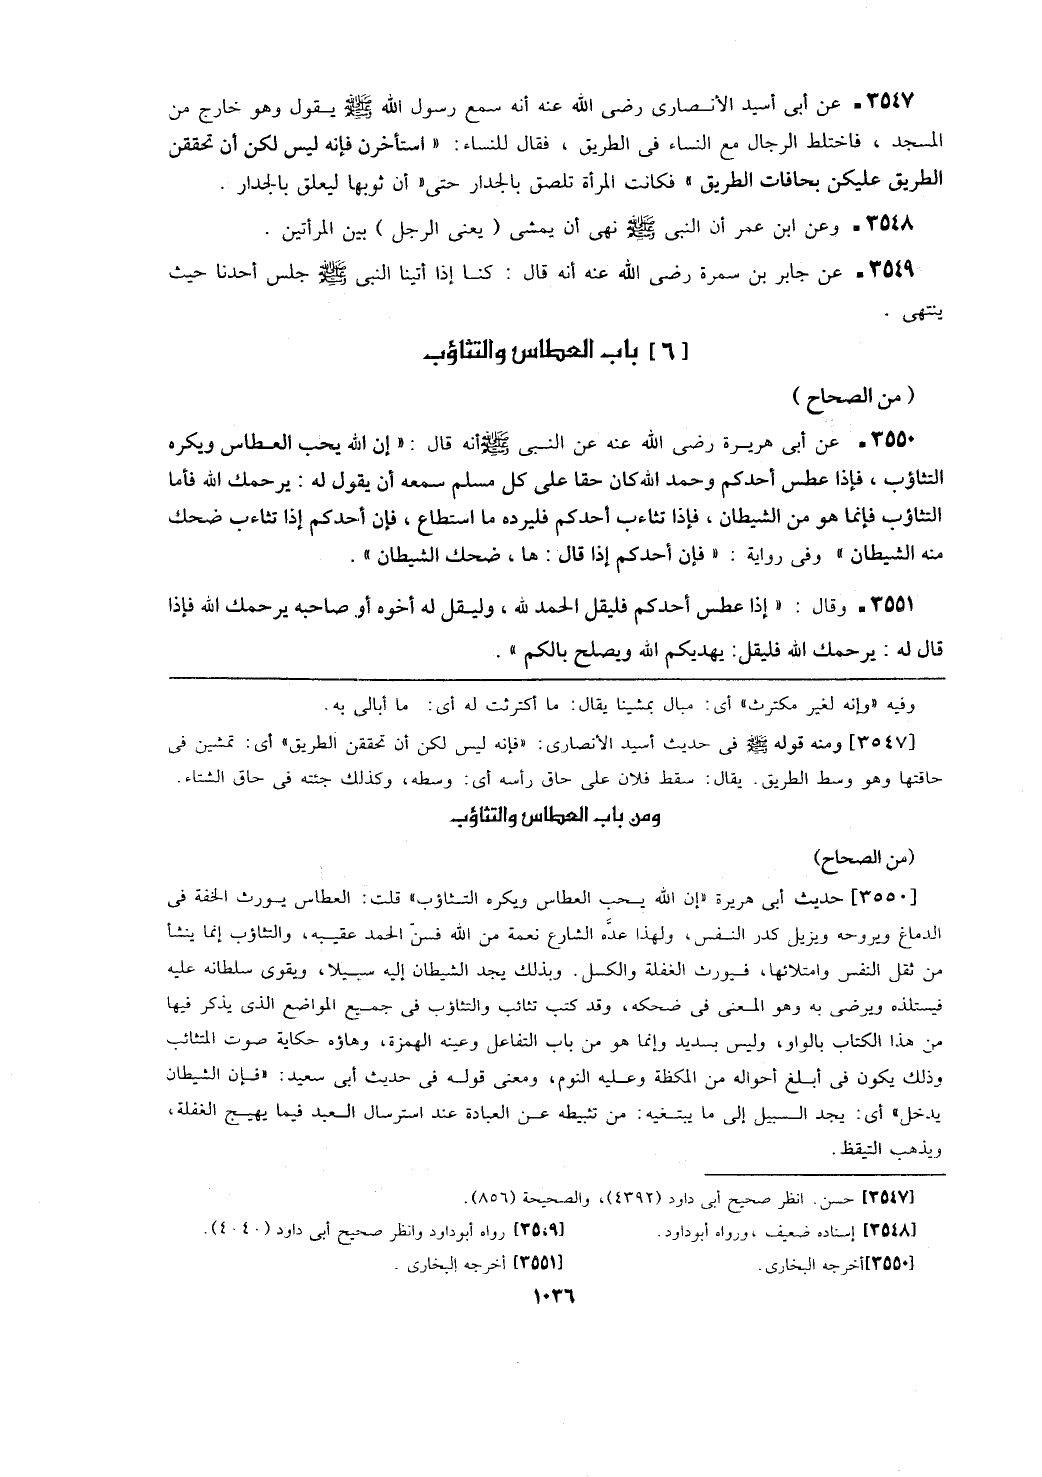 ٣٥٤٧ـ عن أبى أسيد الأنصارى رضى الله عنه أنه سمع رسول الله ﷺ يقول وهو خارج من
المسجد ، فاختلط الرجال مع النساء فى الطريق ، فقال للنساء: « استأخرن فإنه ليس لكن أن تحققن
الطريق عليكن بحافات الطريق » فكانت المرأة تلصق بالجدار حتى« أن ثوبها ليعلق بالجدار .
٣٥٤٨ـ وعن ابن عمر أن النبى ﷺ نهى أن يمشى ( يعنى الرجل ) بين المرأتين .
٣٥٤٩ـ عن جابر بن سمرة رضى الله عنه أنه قال : كنا إذا أتينا النبى ﷺ جلس أحدنا حيث
ينتهى .
[ ٦ ] باب العطاس والتثاؤب
( من الصحاح )
٣٥٥٠ـ عن أبى هريرة رضى الله عنه عن النبى ﷺ أنه قال :« إن الله يحب العطاس ويكره
التثاؤب ، فإذا عطس أحدكم وحمد الله كان حقا على كل مسلم سمعه أن يقول له : يرحمك الله فأما
التثاؤب فإنما هو من الشيطان ، فإذا تثاءب أحدكم فليرده ما استطاع ، فإن أحدكم إذا تثاءب ضحك
منه الشيطان » وفى رواية : « فإن أحدكم إذا قال : ها ، ضحك الشيطان » .
٣٥٥١ـ وقال : « إذا عطس أحدكم فليقل الحمد لله ، وليقل له أخوه أو صاحبه يرحمك الله فإذا
قال له : يرحمك الله فليقل: يهديكم الله ويصلح بالكم » .
وفيه «وإنه لغير مكترث» أى: مبال بمشينا يقال: ما أكترثت له أى: ما أبالى به.
[٣٥٤٧] ومنه قوله ﷺ فى حديث أسيد الأنصارى: «فإنه ليس لكن أن تحققن الطريق» أى: تمشين فى
حاقتها وهو وسط الطريق. يقال: سقط فلان على حاق رأسه أى: وسطه، وكذلك جئته فى حاق الشتاء.
ومن باب العطاس والتثاؤب
(من الصحاح)
[٣٥٥٠] حديث أبى هريرة «إن الله يحب العطاس ويكره التثاؤب» قلت: العطاس يورث الخفة فى
الدماغ ويروحه ويزيل كدر النفس، ولهذا عدَّه الشارع نعمة من الله فسنّ الحمد عقيبه، والتثاؤب إنما ينشأ
من ثقل النفس وامتلائها، فيورث الغفلة والكسل. وبذلك يجد الشيطان إليه سبيلا، ويقوى سلطانه عليه
فيستلذه ويرضى به وهو المعنى فى ضحكه، وقد كتب تثائب والتثاؤب فى جميع المواضع الذى يذكر فيها
من هذا الكتاب بالواو، وليس بسديد وإنما هو من باب التفاعل وعينه الهمزة، وهاؤه حكاية صوت المتثائب
وذلك يكون فى أبلغ أحواله من المكظة وعليه النوم، ومعنى قوله فى حديث أبى سعيد: «فإن الشيطان
يدخل» أى: يجد السبيل إلى ما يبتغيه: من تثبيطه عن العبادة عند استرسال العبد فيما يهيج الغفلة،
ويذهب التيقظ.
[٣٥٤٧] حسن. انظر صحيح أبى داود (٤٣٩٢)، والصحيحة (٨٥٦).
[٣٥٤٨] إسناده ضعيف ، ورواه أبوداود. [٣٥٠٩] رواه أبوداود وانظر صحيح أبى داود (٤٠٤٠).
[٣٥٥٠]أخرجه البخارى. [٣٥٥١] أخرجه البخارى .
١٠٣٦